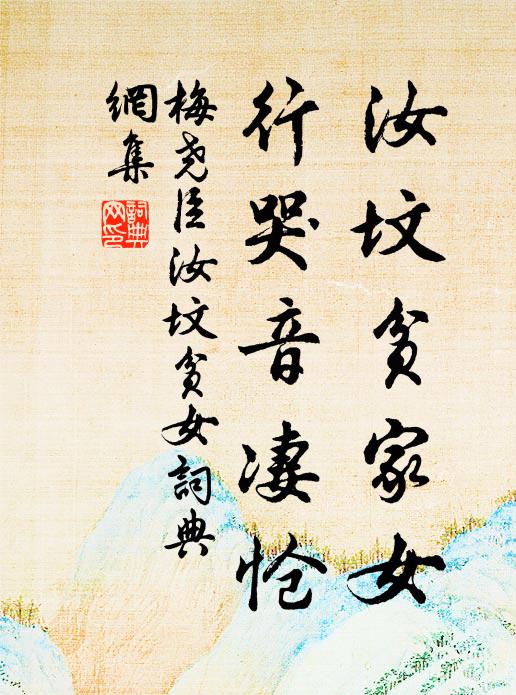 汝坟贫家女
行哭音凄怆
梅尧臣汝坟贫女詞典
網集
詞典
网印